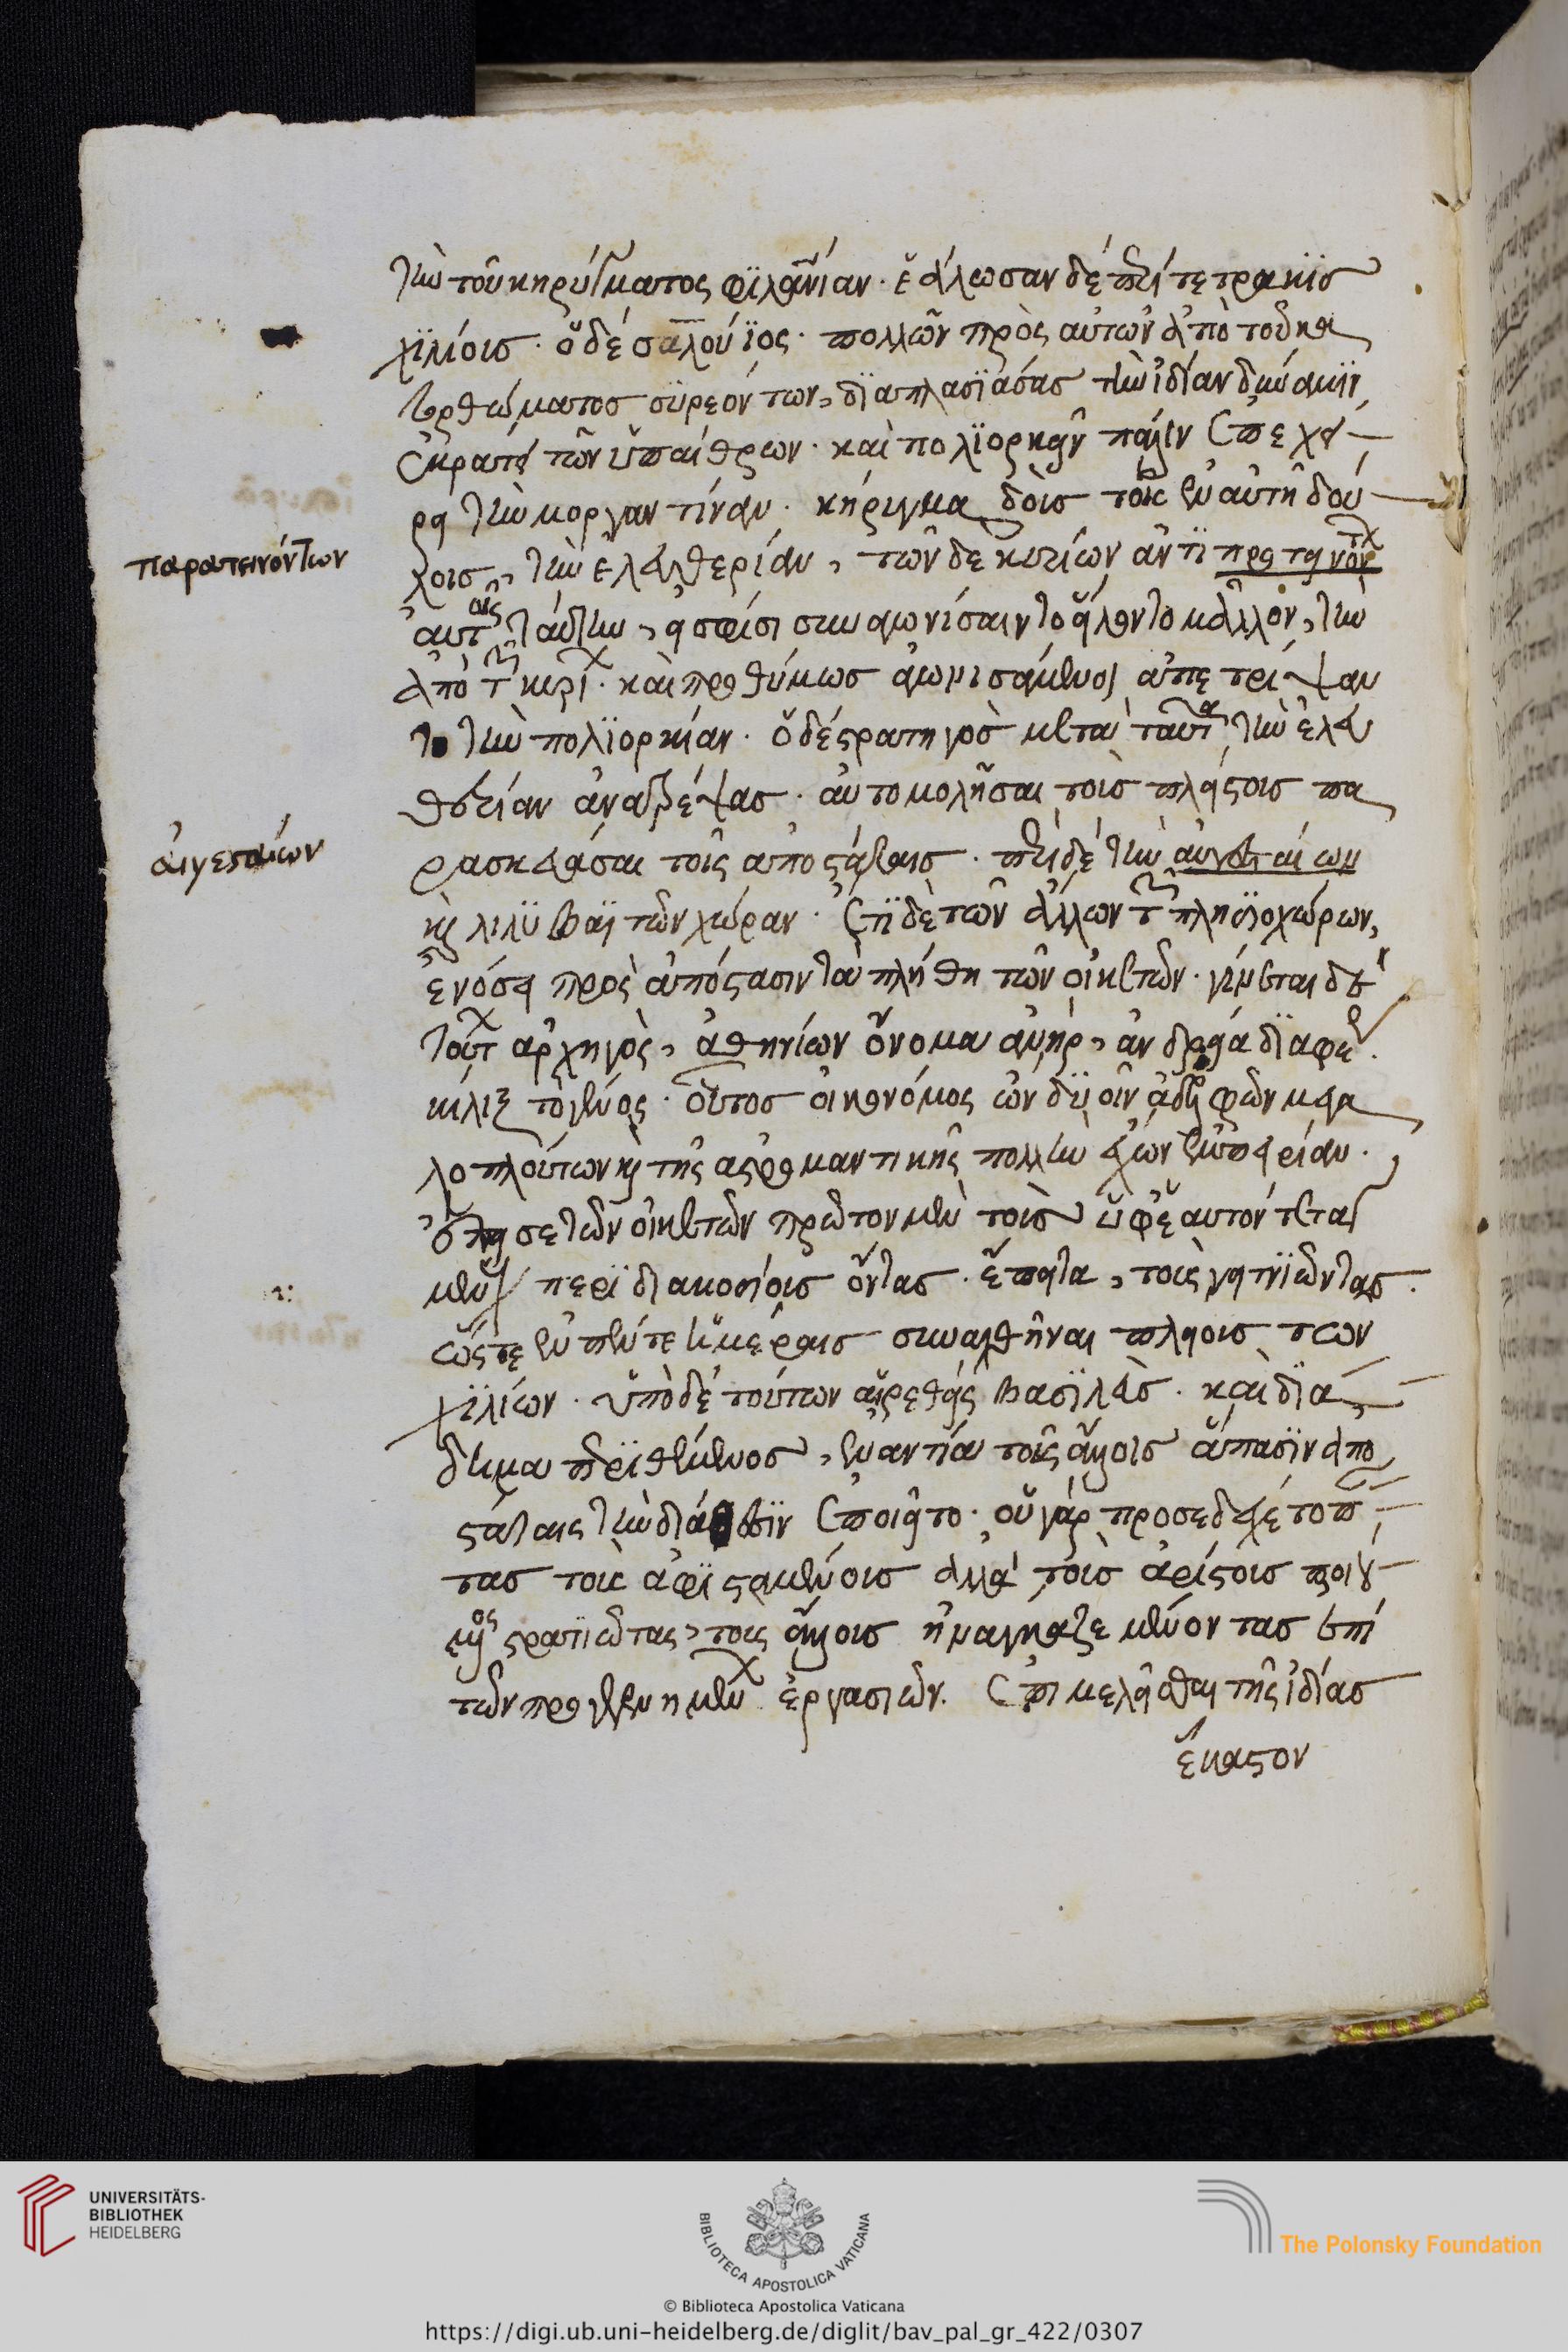 τὴν τοῦ κηρύγματος φϊλανίαν. ἑάλωσαν δέ περί τετρακϊσ
χϊλίοισ. ὁδέ σαλούϊος. πολλῶν πρὸς αὐτων ἀπὸ τοῦ κα
τορθώματοσ σϋρεόντων, δϊαπλασϊάσασ τὴν ἰδίαν δύναμϊν,
ἐκράτει τῶν ὑπαίθρων. καὶ πολϊορκεῖν πάλιν ἐπεχεί
ρει τὴν μοργαντίναν. κήρυγμα δοὺσ τοῖς ἐν αὐτῆ δού
λοισ, τὴν ἐλευθερίαν, τῶν δὲ κυρίων ἀντϊ προτεινόντων
παρατεινόντων
αὐτοῖς ταύτην, εἰ σφίσι συναγωνίσαιντο εἵλοντο μᾶλλον, τὴν
ἀπὸ τῶν κυρί. καὶ προθύμωσ ἀγωνισάμενοι ἀπετρίψαν
το τὴν πολϊορκίαν. ὁδέ στρατηγὸσ μετὰ ταῦτα τὴν ἐλευ
θερίαν ἀνατρέψασ. αὐτομολῆσαι τοὺσ πλείστουσ πα
ρασκευάσαι τοῖς ἀποστάταισ. περὶ δέ τὴν αὐγεσταίων
αἰγεσταίων
καὶ λιλϋβαϊτῶν χώραν. ἐτϊ δὲ τῶν ἄλλων τῶν πλησϊοχώρων,
ἐνόσει πρὸς ἀπόστασιν τὰ πλήθη τῶν οἰκετῶν. γίνεται δὲ
τούτων ἀρχηγὸς, ἀθηνίων ὄνομα ἀνὴρ, ἀνδρεία διαφέρων.
κίλιξ τὸ γένος. οὗτοσ οἰκονόμος ὢν δϋοῖν ἀδελφῶν μεγα
λοπλούτων καὶ τῆς ἀστρομαντικῆς πολλὴν ἔχων ἐμπειρίαν.
ἔπεισε τῶν οἰκετῶν πρῶτον μὲν τοὺσ ὑφ' ἑαυτόν τεταγ
μένους περϊ διακοσίουσ ὄντασ. ἔπειτα, τοὺς γειτνϊῶντασ.
ὥστε ἐν πέντε ἡμέραισ συναχθῆναι πλείουσ τῶν
χϊλίων. ὑπὸ δέ τούτων αἱρεθεὶς βασϊλεὺσ. καὶ διά
δημα περϊθέμενοσ, ἐναντία τοῖς ἄλλοισ ἅπασϊν ἀπο
στάταις τὴν διάθεσϊν ἐποιεῖτο. οὐ γάρ προσεδέχετο πάν
τασ τοὺς ἀφϊσταμένουσ ἀλλὰ τοὺσ ἀρίστουσ ποιού
μενος στρατϊώτασ, τοὺς ἄλλουσ ἠνάγκαζε μένοντασ ἐπὶ
τῶν προγεγενημένων ἐργασιῶν. ἐπιμελεῖσθαι τῆς ἰδίασ
ἕκαστον
UNIVERSITÄTS-
BIBLIOTHEK
HEIDELBERG
BIBLIOTECA APOSTOLICA VATICANA
The Polonsky Foundation
© Biblioteca Apostolica Vaticana
https://digi.ub.uni-heidelberg.de/diglit/bav_pal_gr_422/0307